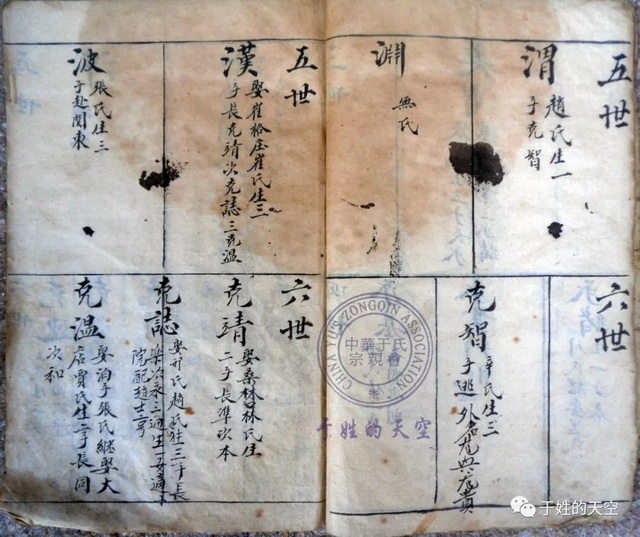 五世
渭
趙氏生一
子克智
淵
無氏
六世
克智
辛氏生三
子逃外名
五世
漢
娶崔格庄崔氏生三
子長克靖次克誌三克温
波
張氏生三
子赴関東
六世
克靖
娶桑林林氏生
二子長準次本
克誌
趙氏生三子長
克温
娶泊子張氏継娶大
店賈氏生二子長同
次和
CHINA YU'S ZONGQIN ASSOCIATION
中華于氏
宗親會
于姓的天空
于姓的天空